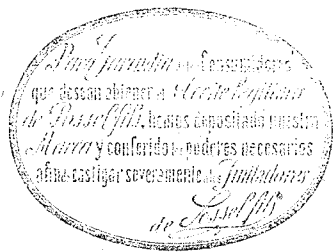 Para Garantia de los Consumidores
que desean obtener el Aceite Legitimo
de Possel fils, hemos depositado nuestra
Marca y conferido los poderes necesarios
afin de castigar severamente a los Imitadores
de Possel fils